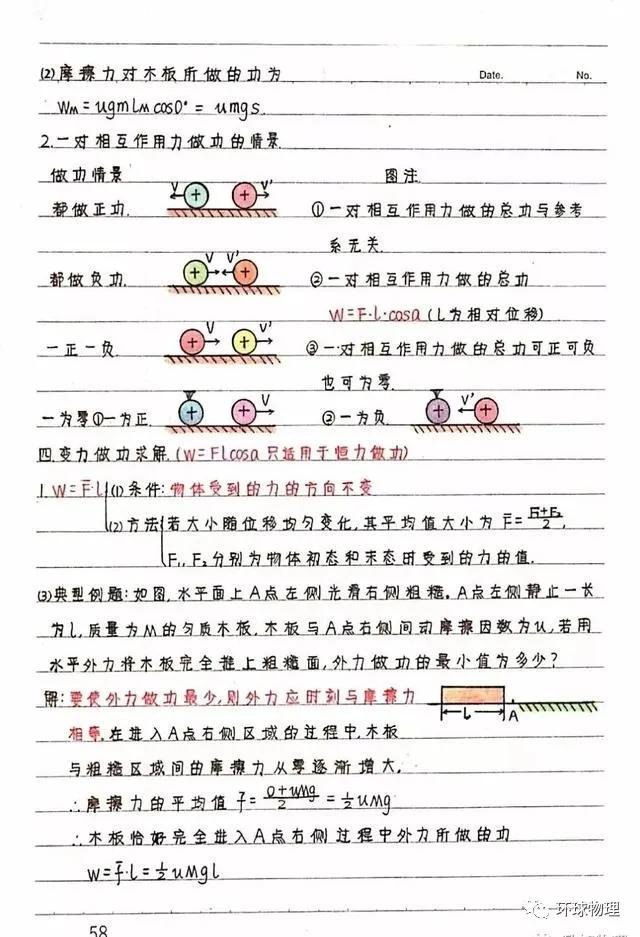 Date. No.
(2)摩擦力对木板所做的功为
WM=ugmLM cos0°=umgs.
2.一对相互作用力做功的情景
做功情景 图注.
V V'
都做正功. ①一对相互作用力做的总功与参考
系无关.
V V'
都做负功. ②一对相互作用力做的总功
W=F·l·cosa(l为相对位移)
V V'
一正一负. ③一对相互作用力做的总功可正可负
也可为零.
一为零①一为正. V ②一为负. V'
四.变力做功求解.(W=Flcosa只适用于恒力做功)
1.W=F̄·l (1)条件:物体受到的力的方向不变
(2)方法 若大小随位移均匀变化,其平均值大小为F̄=F1+F2/2,
F1,F2分别为物体初态和末态时受到的力的值.
(3)典型例题:如图,水平面上A点左侧光滑右侧粗糙。A点左侧静止一长
为l,质量为M的匀质木板,木板与A点右侧间动摩擦因数为u,若用
水平外力将木板完全推上粗糙面,外力做功的最小值为多少?
解:要使外力做功最少,则外力应时刻与摩擦力
L A
相等,在进入A点右侧区域的过程中,木板
与粗糙区域间的摩擦力从零逐渐增大,
∴摩擦力的平均值f̄=0+uMg/2=1/2uMg
∴木板恰好完全进入A点右侧过程中外力所做的功
W=f̄·l=1/2uMgl
58
环球物理